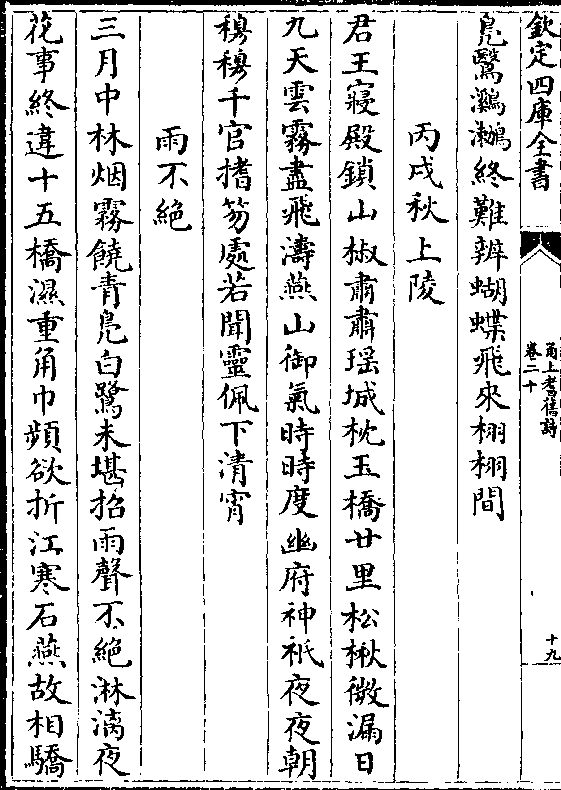 欽定四庫全書
甬上耆舊詩
卷二十
十九
鳧鷖㶉鶒終難辨蝴蝶飛來栩栩間
丙戌秋上陵
君王寢殿鎖山椒肅肅瑶城枕玉橋廿里松楸微漏日
九天雲霧盡飛濤燕山御氣時時度幽府神祇夜夜朝
穆穆千官搢笏處若聞靈佩下清宵
雨不絶
三月中林烟霧饒青鳧白鷺未堪招雨聲不絶淋漓夜
花事終違十五橋濕重角巾頻欲折江寒石燕故相驕